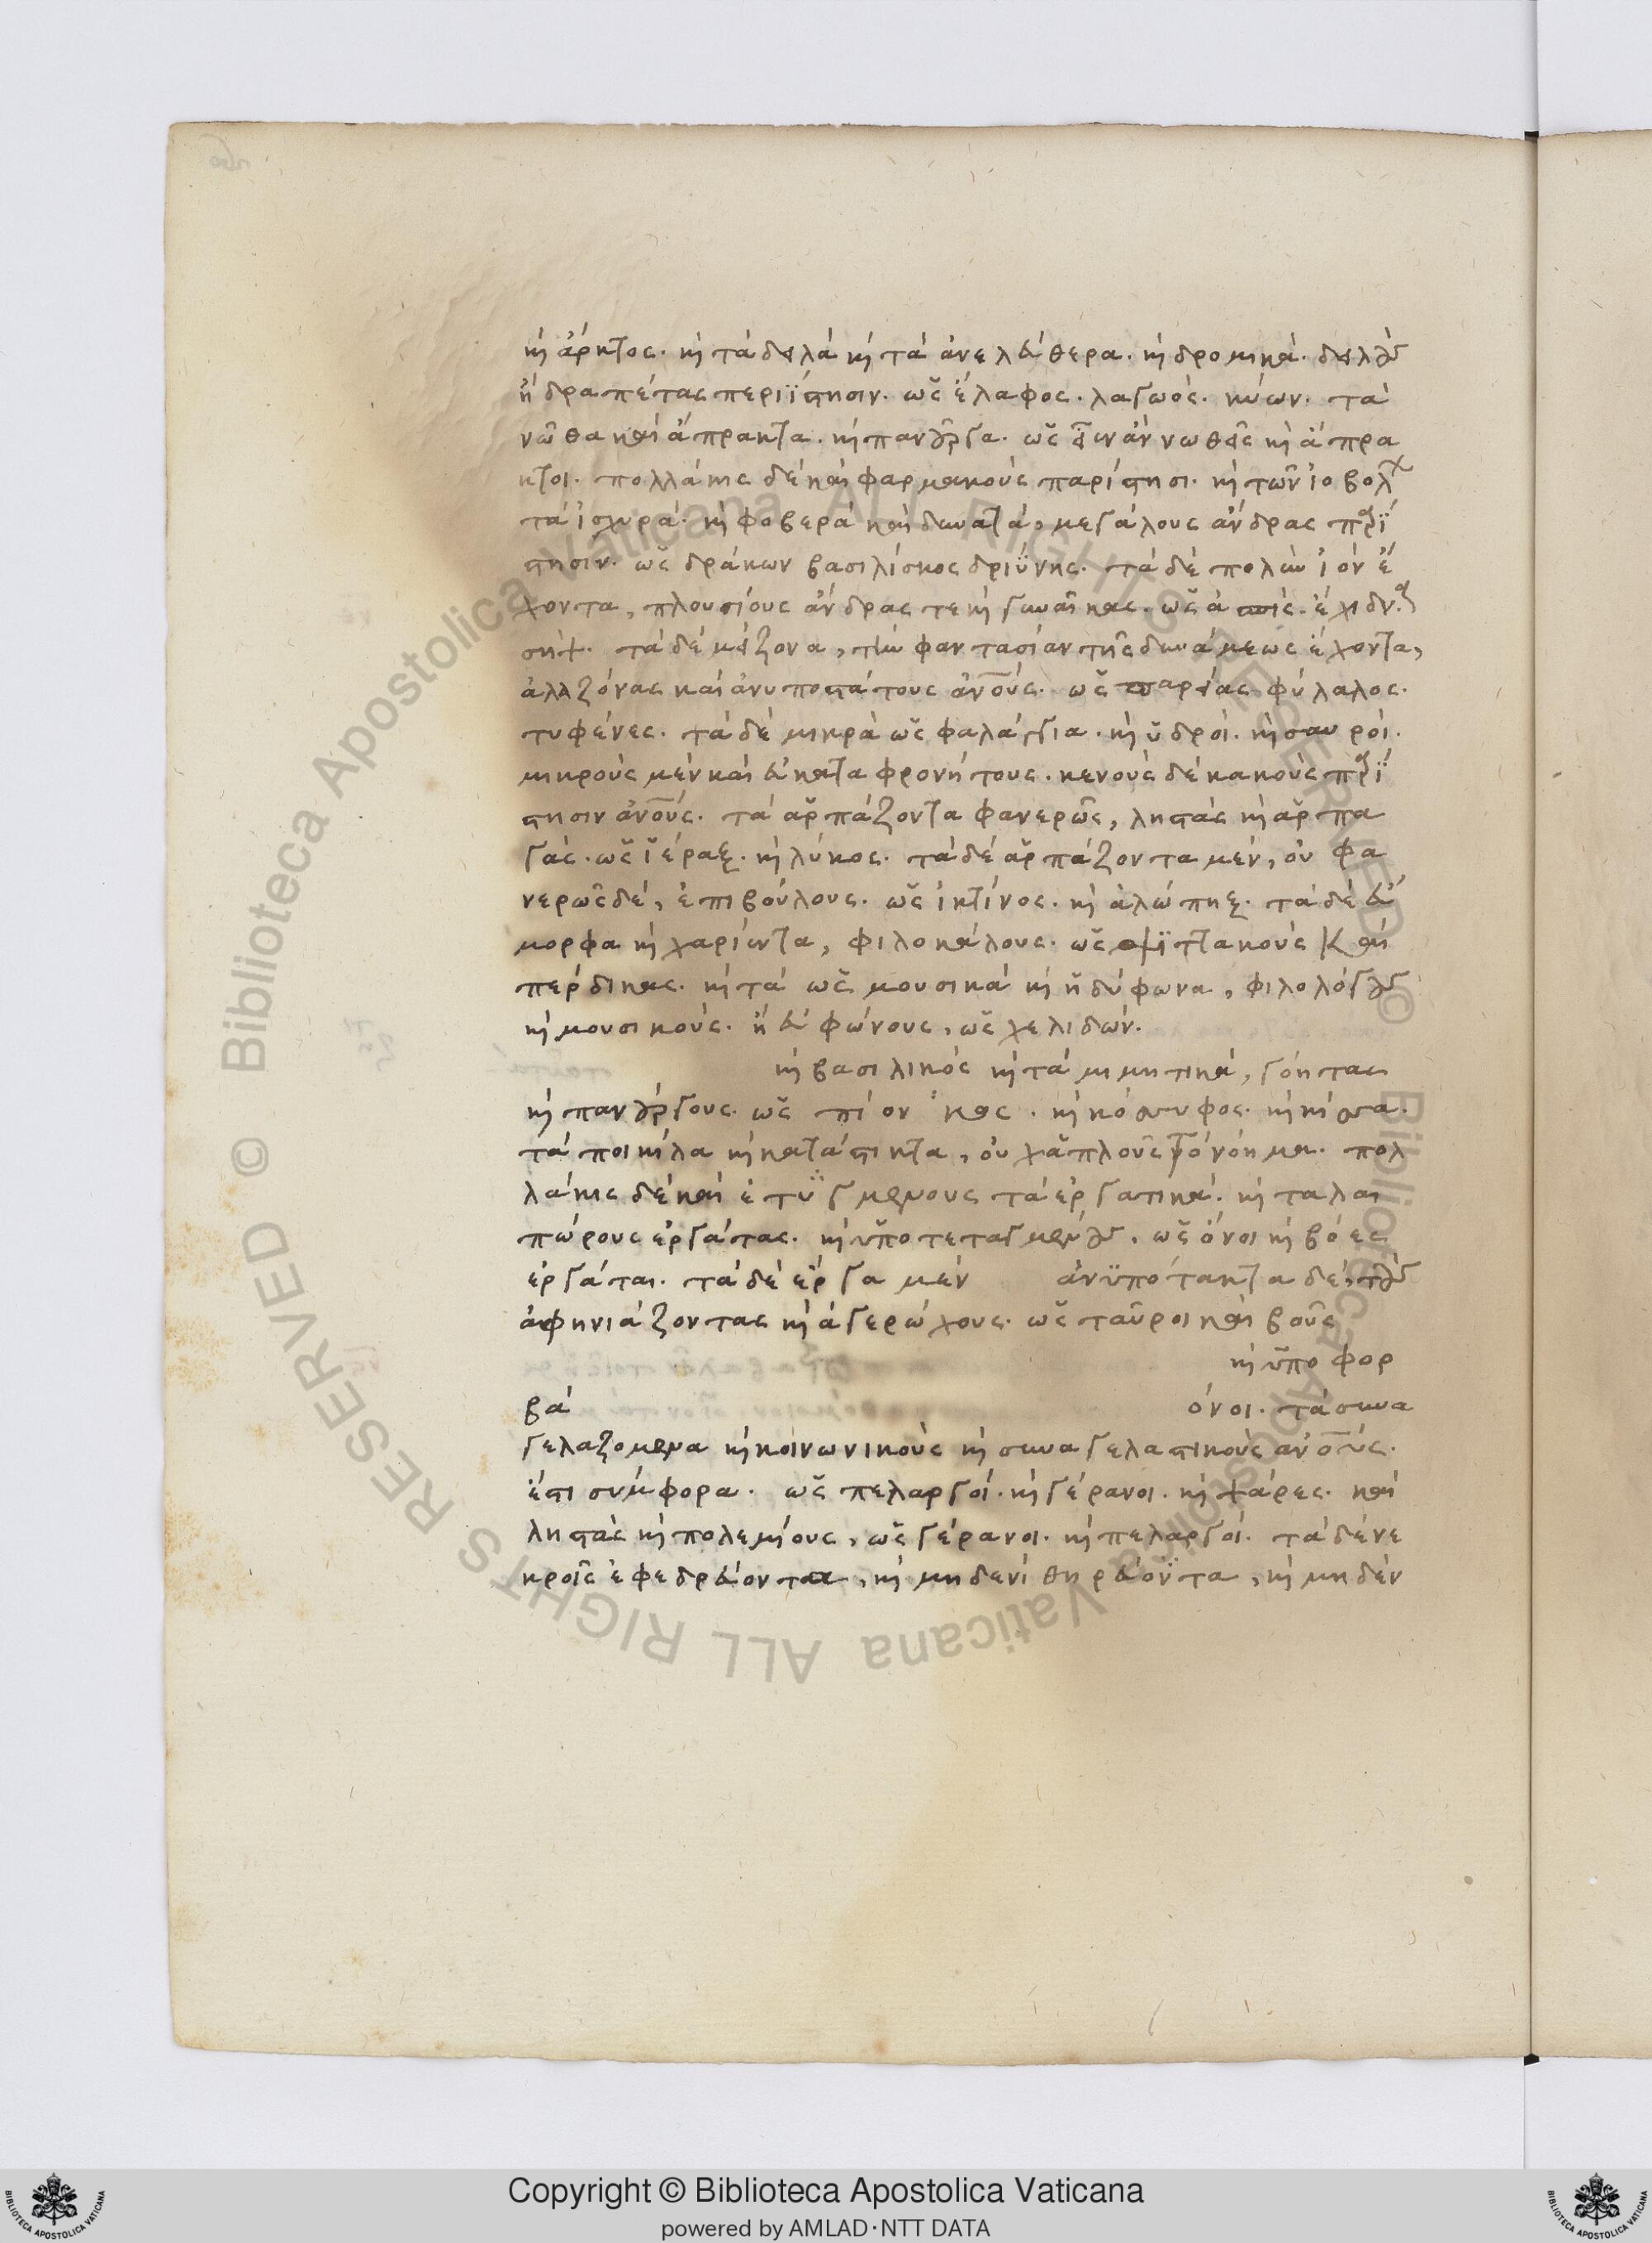 καὶ ἄρκτος. καὶ τὰ δειλὰ καὶ τὰ ἀνελεύθερα. καὶ δρομικὰ. δειλοὺς
ἢ δραπέτας περιΐστησιν. ὡς ἔλαφος. λαγωὸς. κύων. τὰ
νωθὰ καὶ ἄπρακτα. καὶ πανοῦργα. ὡς νωθεῖς καὶ ἄπρα
κτοι. πολλάκις δὲ καὶ φαρμακοὺς παρίστησι. καὶ τῶν ἰοβόλων
τὰ ἰσχυρὰ. καὶ φοβερὰ καὶ δυνατὰ, μεγάλους ἄνδρας παρΐ
στησιν. ὡς δράκων βασιλίσκος δρυΐνης. τὰ δὲ πολὺν ἰὸν ἔ
χοντα, πλουσίους ἄνδρας τε καὶ γυναῖκας. ὡς ἀσπὶς. ἔχιδνα.
σήψ. τὰ δὲ μείζονα, τὴν φαντασίαν τῆς δυνάμεως ἔχοντα,
ἀλαζόνας καὶ ἀνυποστάτους ἀνους. ὡς παρείας φύλαλος.
τυφένες. τὰ δὲ μικρὰ ὡς φαλάγγια. καὶ ὕδροι. καὶ σαυροί.
μικροὺς μὲν καὶ εὐκαταφρονήτους. κενοὺς δὲ κακοὺς παρΐ
στησιν ἀνους. τὰ ἁρπάζοντα φανερῶς, ληστὰς καὶ ἅρπα
γας. ὡς ἱέραξ. καὶ λύκος. τὰ δὲ ἁρπάζοντα μὲν, οὐ φα
νερῶς δὲ, ἐπιβούλους. ὡς ἰκτίνος. καὶ ἀλώπηξ. τὰ δὲ εὔ
μορφα καὶ χαρίεντα, φιλοκάλους. ὡς ψιττακοὺς καὶ
πέρδικας. καὶ τὰ ὡς μουσικὰ καὶ ἡδύφωνα, φιλολόγους
καὶ μουσικοὺς. ἢ εὐφώνους, ὡς χελιδών.
καὶ βασιλικὸς καὶ τὰ μιμητικὰ, γόητας
καὶ πανούργους. ὡς πί ον κας. καὶ κόσσυφος. καὶ κίσσα.
τὰ ποικίλα καὶ κατάστικτα, οὐχ ἁπλοῦς τὸ νόημα. πολ
λάκις δὲ καὶ ἐστιγμένους τὰ ἐργατικὰ. καὶ ταλαι
πώρους ἐργάτας. καὶ ὑποτεταγμένους, ὡς ὄνοι καὶ βόες
ἐργάται. τὰ δὲ ἔργα μὲν ἀνϋπότακτα δὲ, τοὺς
ἀφηνιάζοντας καὶ ἀγερώχους. ὡς ταῦροι καὶ βοῦς
καὶ ὑποφορ
βά ὄνοι. τὰ συνα
γελαζόμενα καὶ κοινωνικοὺς καὶ συναγελαστικοὺς ἀνους.
ἔστι σύμφορα. ὡς πελαργοί. καὶ γέρανοι. καὶ ψάρες. καὶ
ληστὰς καὶ πολεμίους, ὡς γέρανοι. καὶ πελαργοί. τὰ δὲ νε
κροῖς ἐφεδρεύοντα, καὶ μηδενὶ θηρεύοντα, καὶ μηδὲν
Copyright © Biblioteca Apostolica Vaticana
powered by AMLAD·NTT DATA